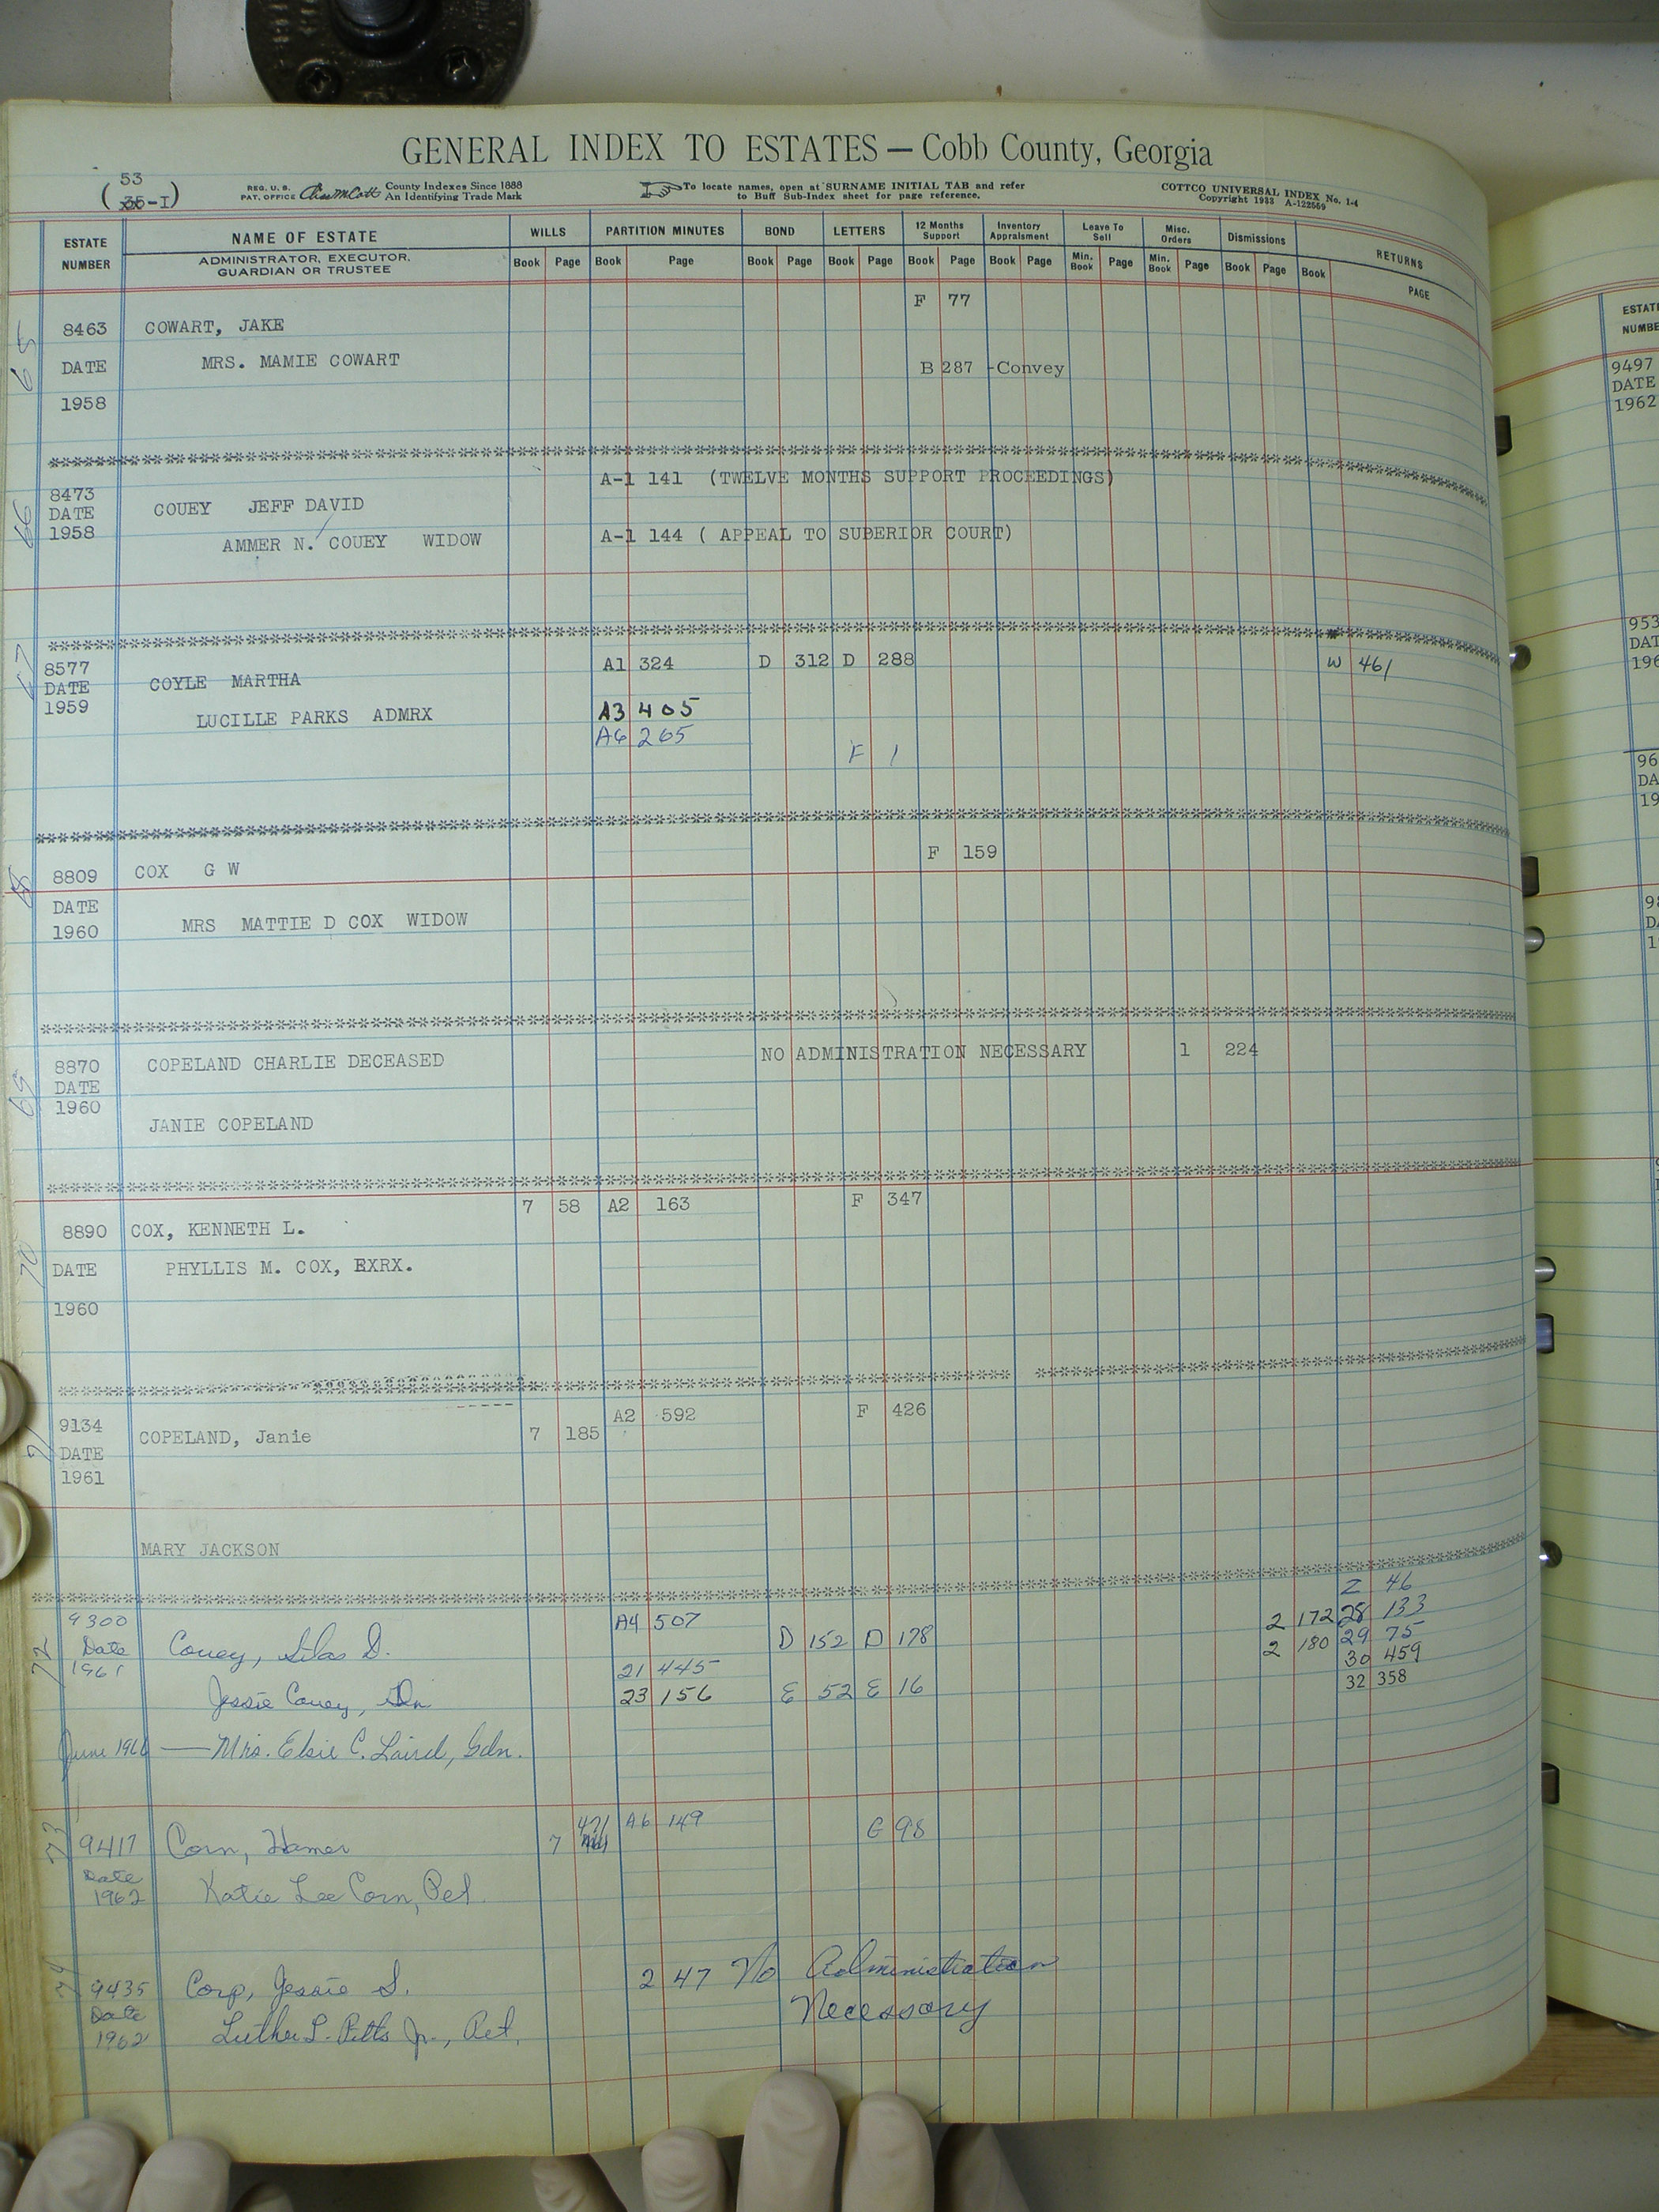 GENERAL INDEX TO ESTATES — Cobb County, Georgia
53
( 35-I)
REG. U. S. PAT. OFFICE County Indexes Since 1888 An Identifying Trade Mark
To locate names, open at SURNAME INITIAL TAB and refer to Buff Sub-Index sheet for page reference.
COTTCO UNIVERSAL INDEX No. 1-4
Copyright 1933 A-122559
ESTATE NUMBER NAME OF ESTATE WILLS PARTITION MINUTES BOND LETTERS 12 Months Support Inventory Appraisment Leave To Sell Misc. Orders Dismissions RETURNS
ADMINISTRATOR, EXECUTOR, GUARDIAN OR TRUSTEE Book Page Book Page Book Page Book Page Book Page Book Page Min. Book Page Min. Book Page Book Page Book PAGE
F 77
65 8463 COWART, JAKE
DATE MRS. MAMIE COWART B 287 -Convey
1958
A-1 141 (TWELVE MONTHS SUPPORT PROCEEDINGS)
66 8473 COUEY JEFF DAVID
DATE
1958 AMMER N. COUEY WIDOW A-1 144 ( APPEAL TO SUPERIOR COURT)
67 8577 A1 324 D 312 D 288 W 461
DATE COYLE MARTHA
1959 LUCILLE PARKS ADMRX A3 405
A6 265 F 1
F 159
8809 COX G W
DATE
1960 MRS MATTIE D COX WIDOW
69 8870 COPELAND CHARLIE DECEASED NO ADMINISTRATION NECESSARY 1 224
DATE
1960
JANIE COPELAND
7 58 A2 163 F 347
70 8890 COX, KENNETH L.
DATE PHYLLIS M. COX, EXRX.
1960
A2 592 F 426
71 9134 COPELAND, Janie 7 185
DATE
1961
MARY JACKSON
Z 46
9300 A4 507 2 172 28 133
72 Date Couey, Silas D. D 152 D 178 2 180 29 75
1961 21 445 30 459
Jessie Couey, Gdn 23 156 E 52 E 16 32 358
June 1966 — Mrs. Elsie C. Laird, Gdn.
73 9417 Corn, Homer 7 421 A6 149 G 98
Date
1962 Katie Lee Corn, Pet.
74 9435 Corp, Jessie S. 2 47 No Administration
Date Necessary
1962 Luther L. Pitts Jr., Pet.
ESTAT
NUMBE
9497
DATE
1962
953
DAT
196
96
DA
19